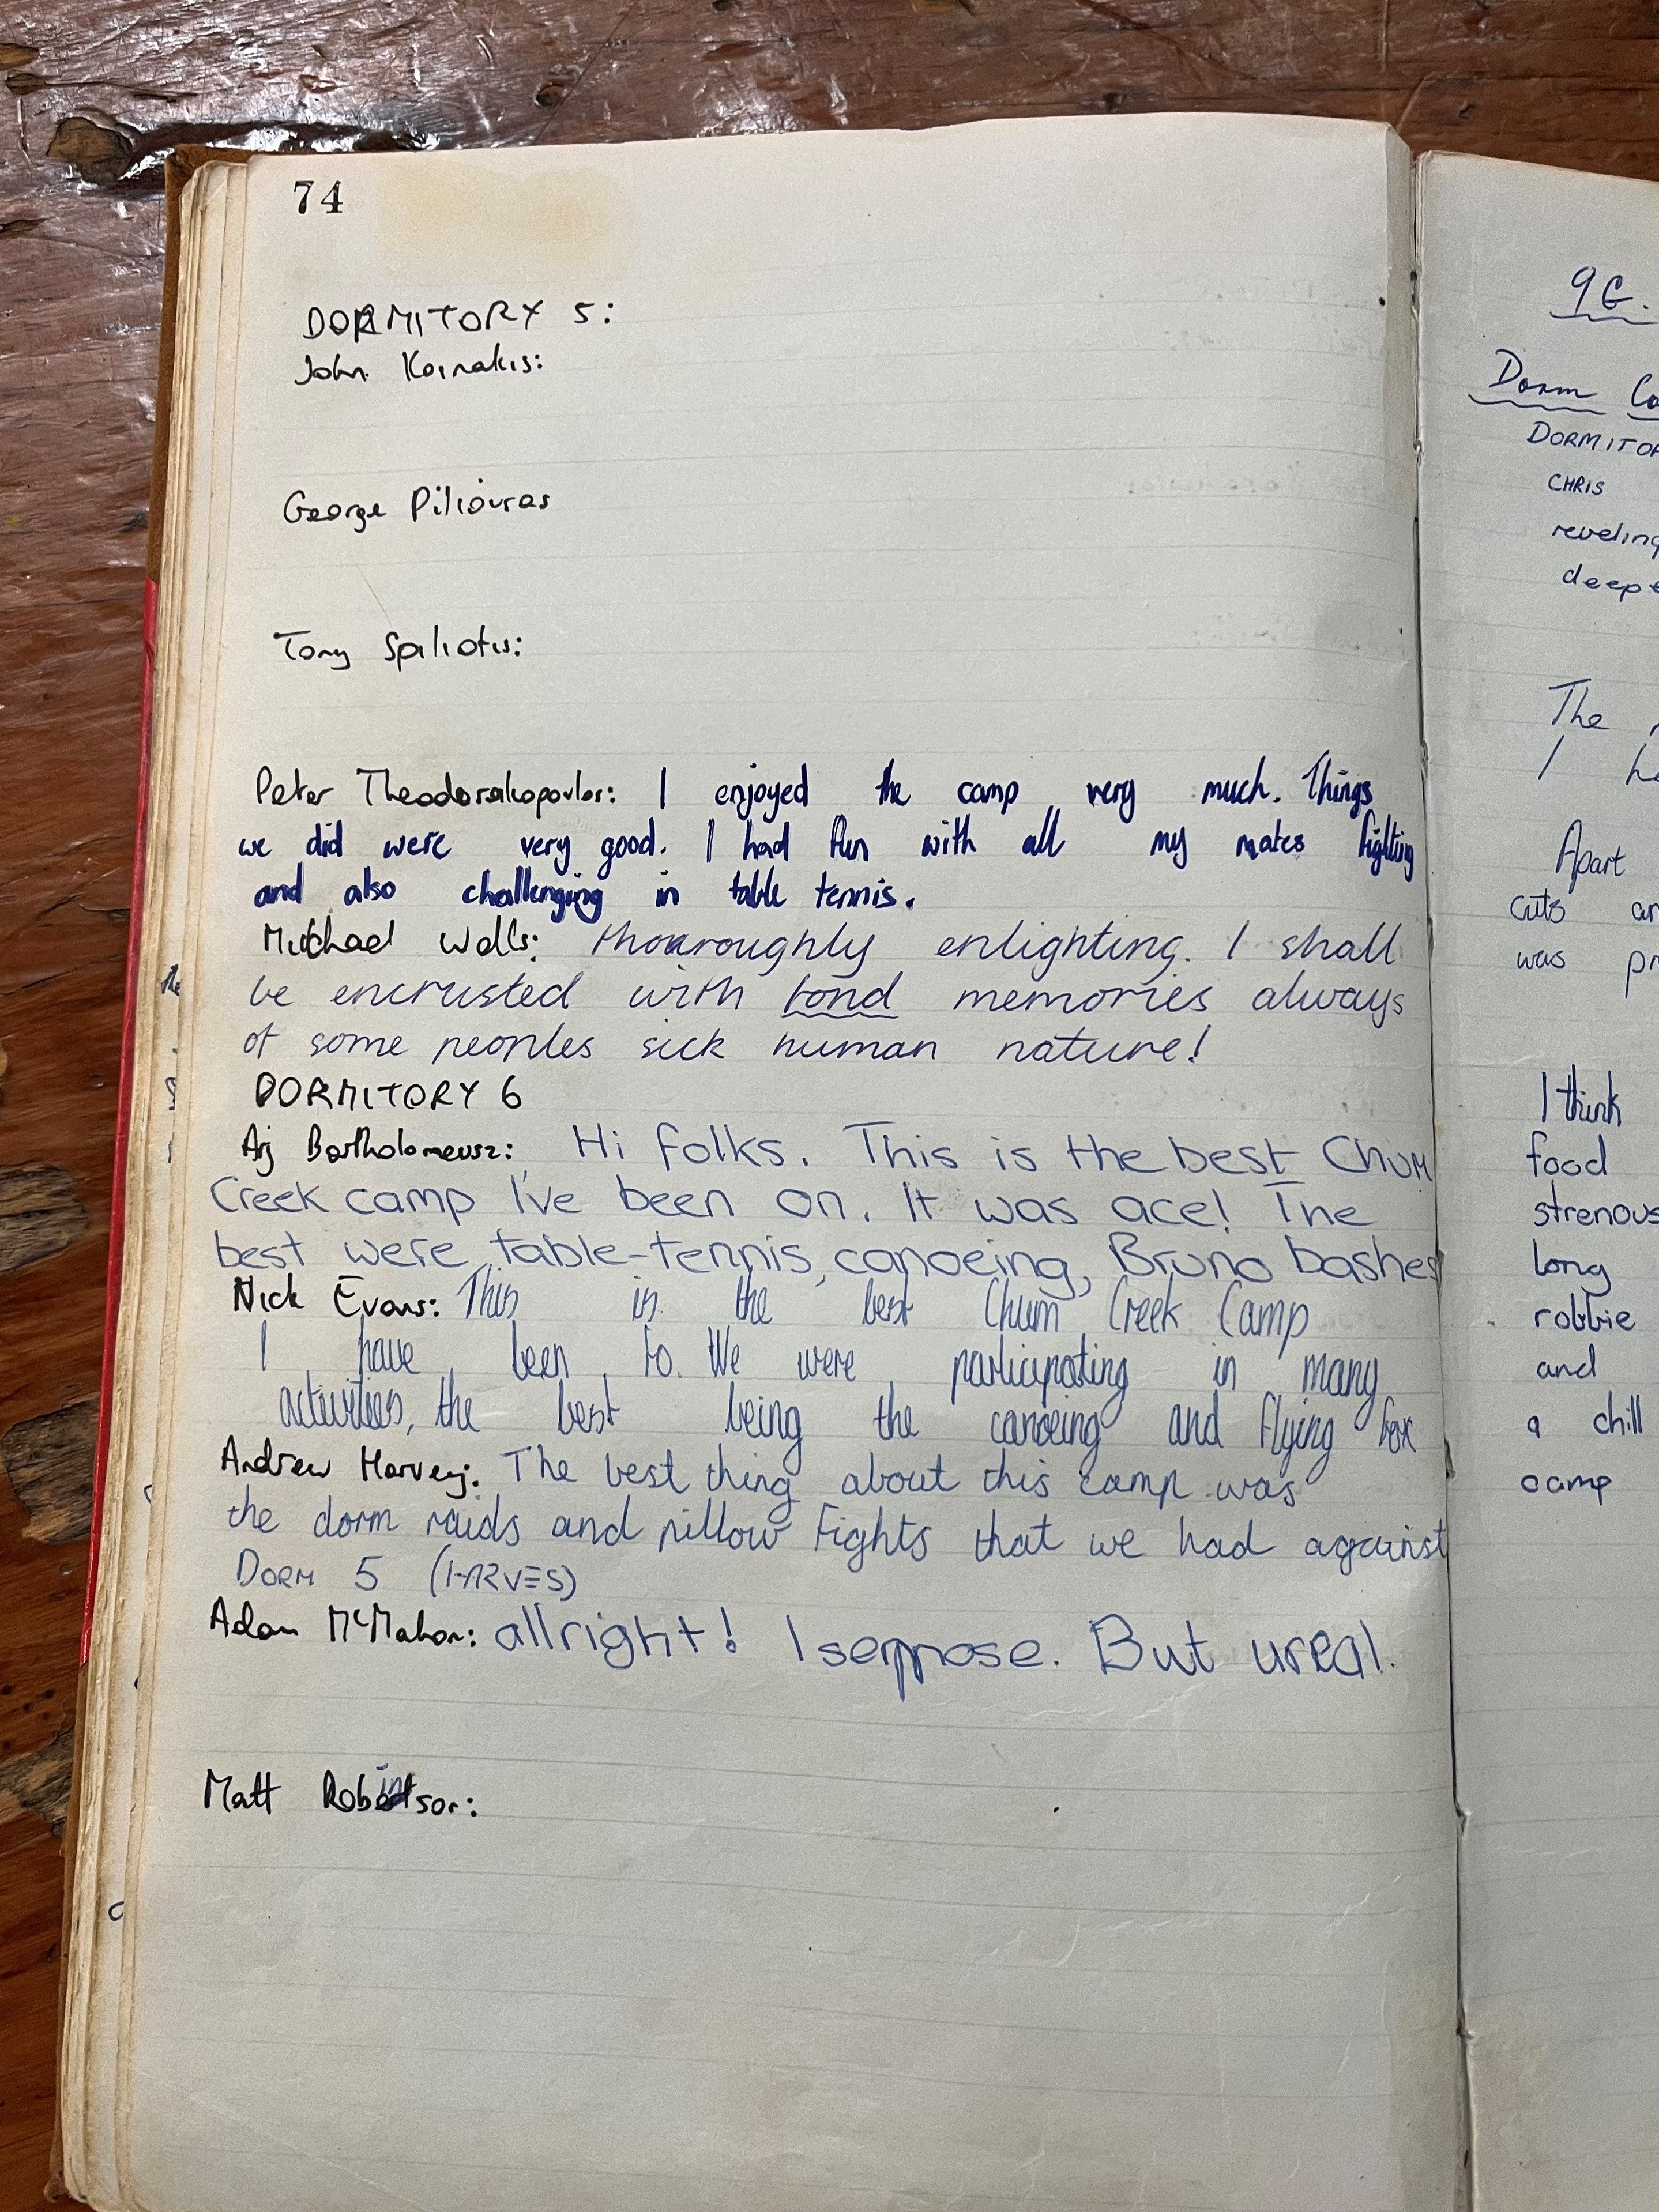 74
DORMITORY 5:
John Koinakis:
George Piliouras
Tony Spiliotis:
Peter Theodorakopoulos: I enjoyed the camp very much. Things
we did were very good. I had fun with all my mates fighting
and also challenging in table tennis.
Michael Wells: thoaroughly enlighting. I shall
be encrusted with fond memories always
of some peoples sick human nature!
DORMITORY 6
Arj Bartholomeusz: Hi folks. This is the best Chum
Creek camp I've been on. It was ace! The
best were table-tennis, canoeing, Bruno bashes
Nick Evans: This is the best Chum Creek Camp
I have been to. We were participating in many
activities, the best being the canoeing and flying fox
Andrew Harvey: The best thing about this camp was
the dorm raids and pillow fights that we had against
DORM 5
Adam McMahon: allright! I seppose. But ureal.
Matt Robinson:
9G.
Dorm Co
DORMITOR
CHRIS
reveling
deep
The
I ha
Apart
cuts ar
was pr
I think
food
strenous
long
robbie
and
a chill
camp
the